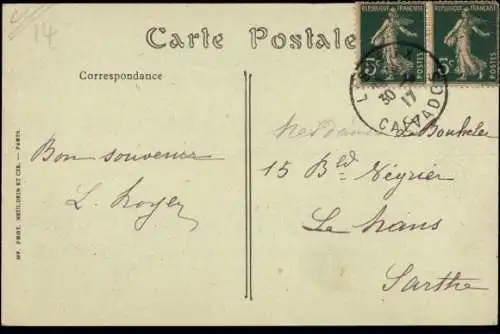 14
Carte Postale
RÉPUBLIQUE FRANÇAISE
5c
POSTES
RÉPUBLIQUE FRANÇAISE
5c
POSTES
30
17
CALVADOS
Correspondance
Bon souvenir
L. Noyer
de Bonkeler
15 Bld Négrier
Le Mans
Sarthe
MP. PHOT. NEURDEIN ET CIE. — PARIS.